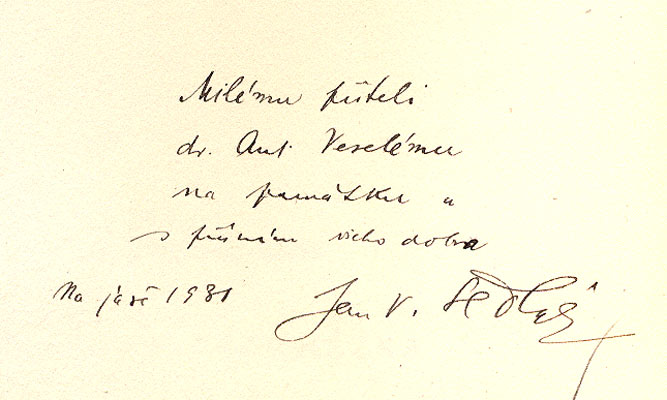 Milému příteli
dr. Ant. Veselému
na památku a
s přáním všeho dobra
Na jaře 1931
Jan V. Sedlák